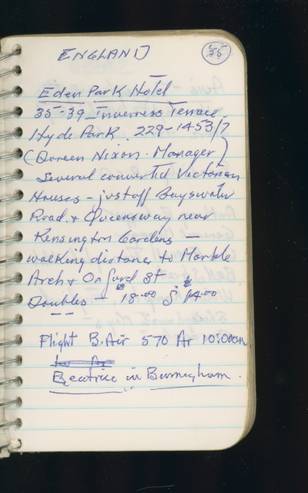 ENGLAND 35
Eden Park Hotel
35-39 Inverness Terrace
Hyde Park 229-1453/7
(Doreen Nixon. Manager)
Several converted Victorian
Houses - just off Bayswater
Road & Queensway near
Kensington Gardens -
walking distance to Marble
Arch & Oxford St
Doubles - 18.00 S 14.00
Flight B. Air 570 Ar 10:00am
Beatrice in Birmingham.